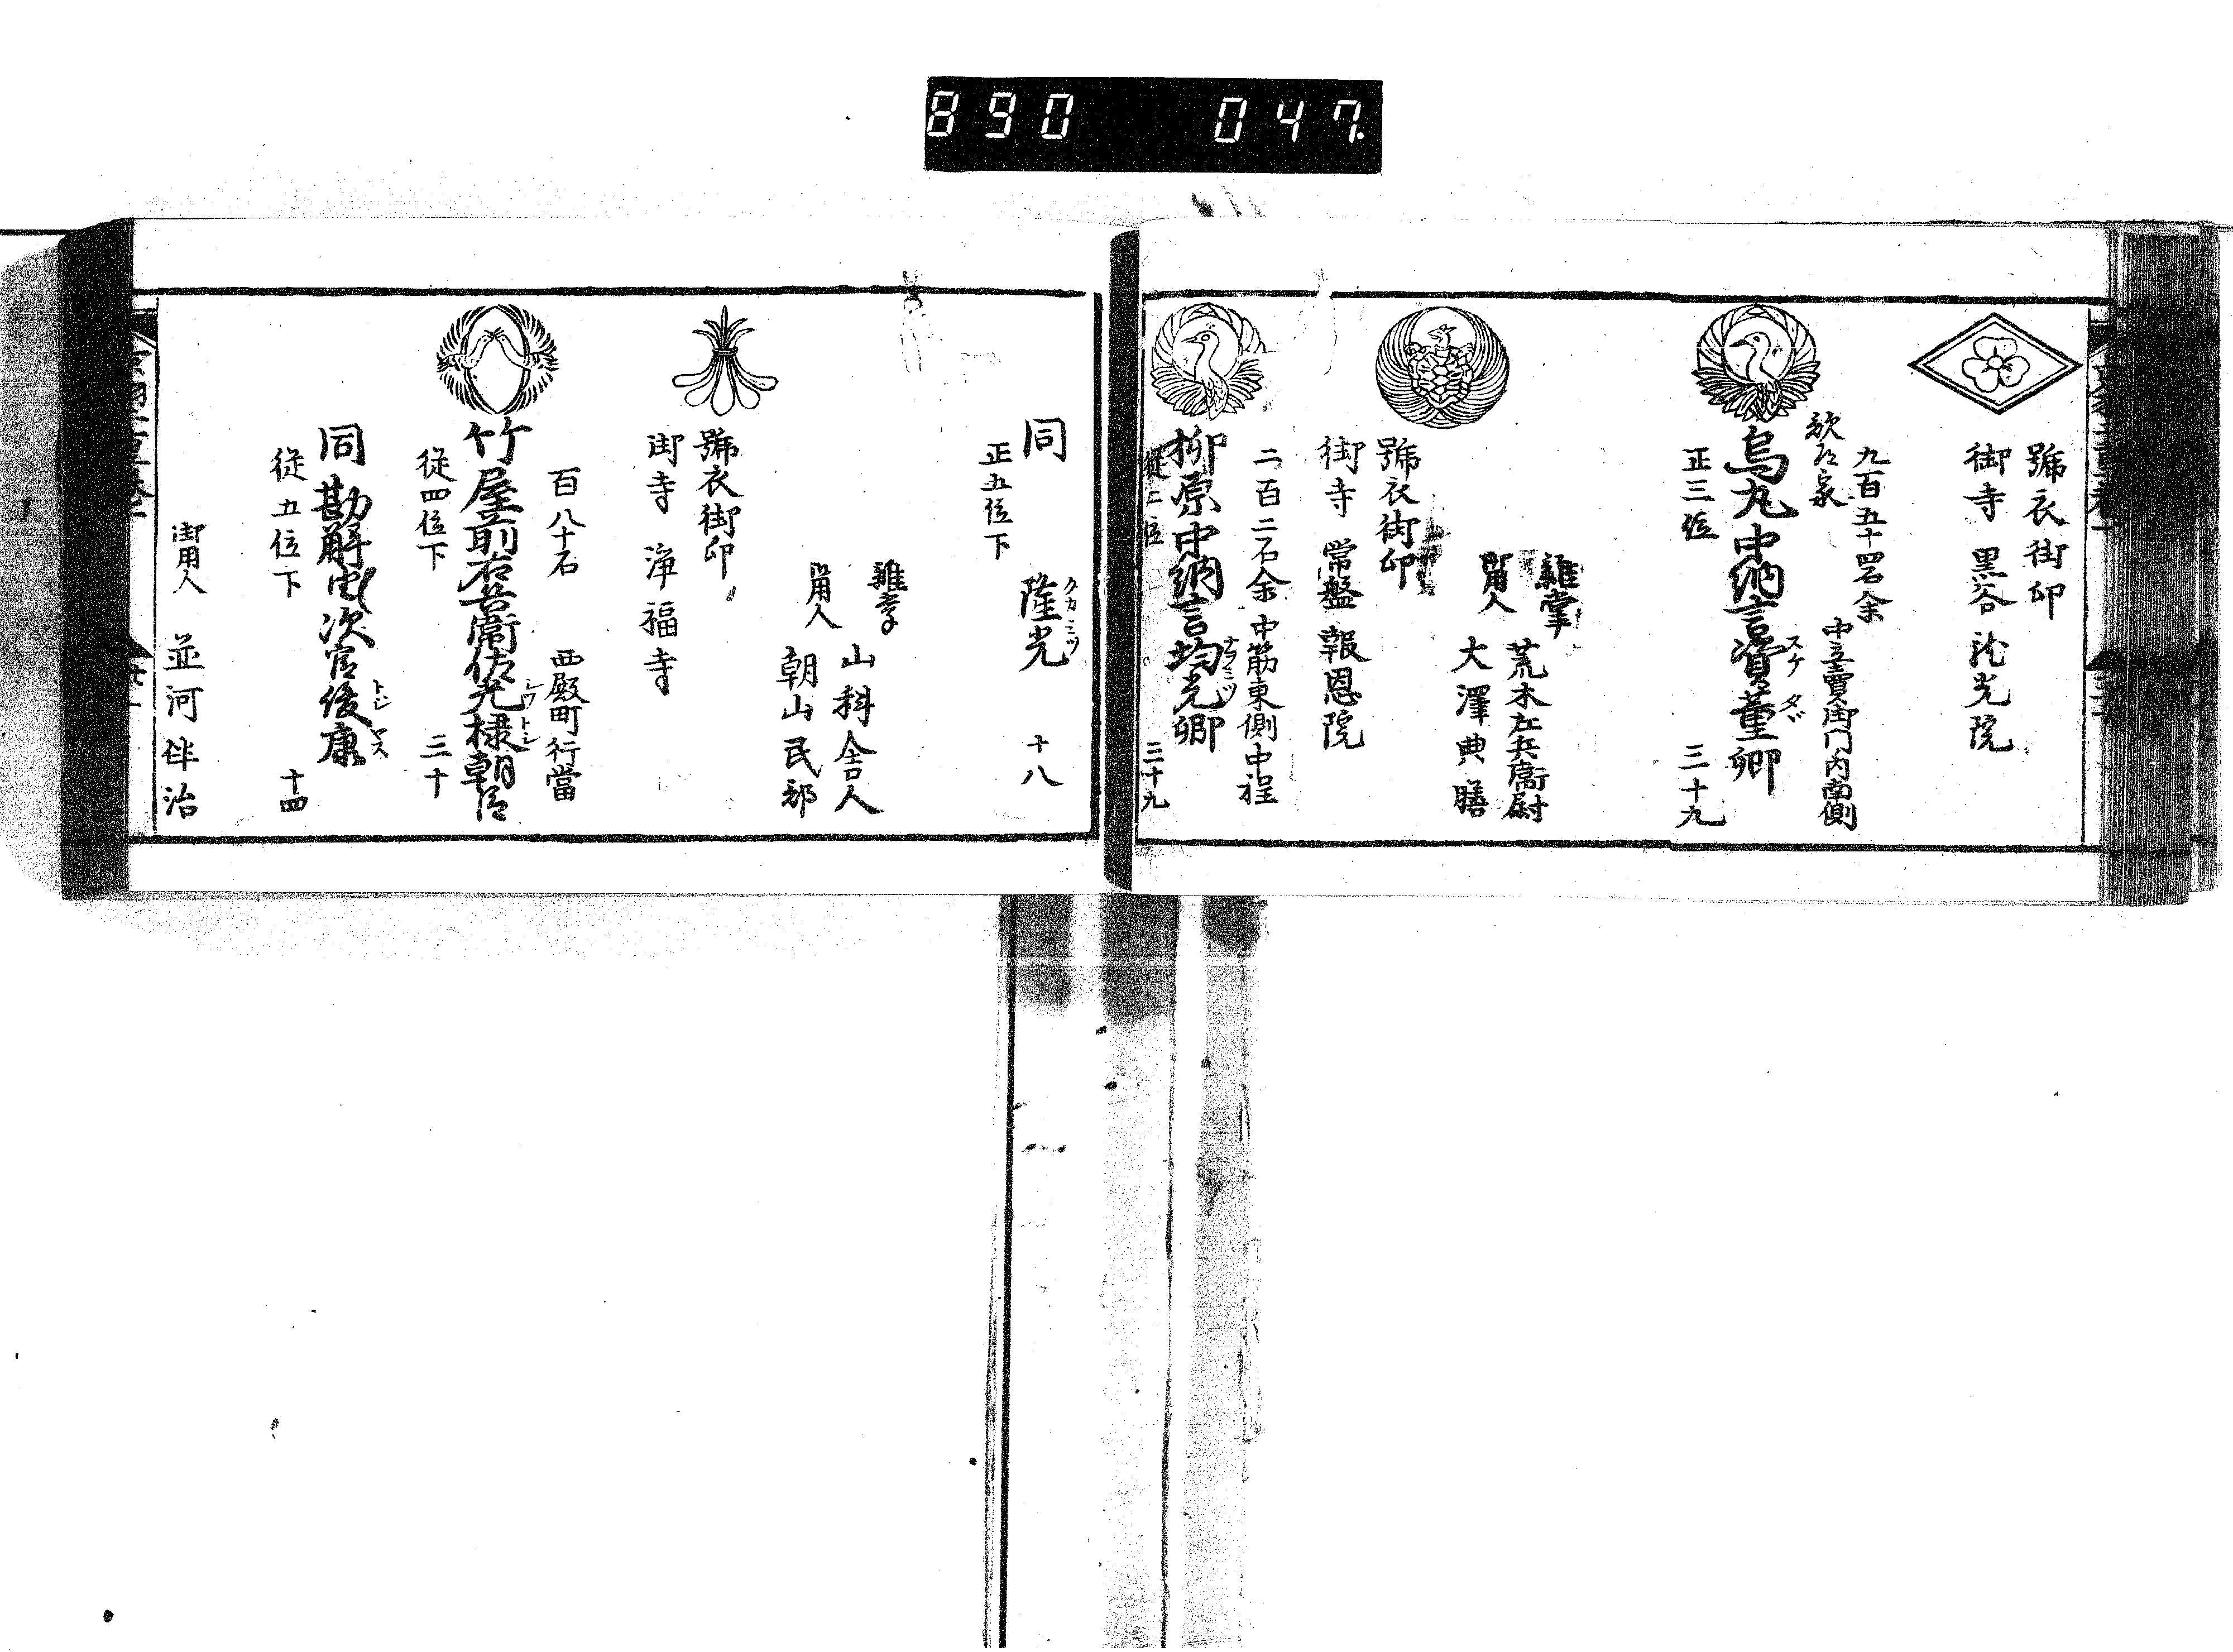 890 047
號衣御印
御寺 黒谷 龍光院
九百五十四石余 中立売御門内南側
歌道家
烏丸中納言資董卿
スケ タヾ
正三位 三十九
雑掌 荒木左兵衛尉
御用人 大澤典膳
號衣御印
御寺 常盤 報恩院
二百二石余 中筋東側中程
柳原中納言均光卿
ナヲミツ
従二位 三十九
同 隆光
タカミツ
正五位下 十八
雑掌 山科舎人
御用人 朝山民部
號衣御印
御寺 浄福寺
百八十石 西殿町行當
竹屋前右兵衛佐光棣朝臣
従四位下 三十
同 勘解由次官俊康
トシ ヤス
従五位下 十四
御用人 並河伴治